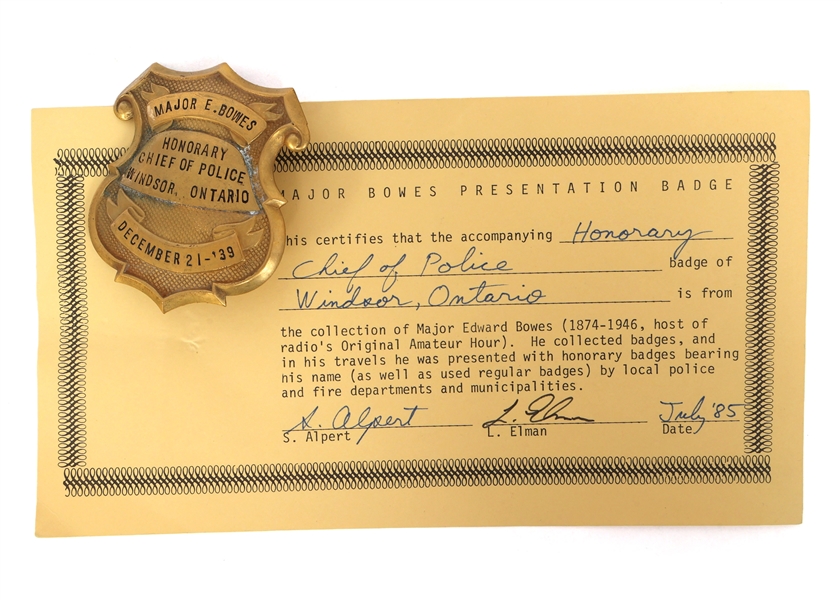 MAJOR E. BOWES
HONORARY
CHIEF OF POLICE
WINDSOR, ONTARIO
DECEMBER 21-'39
MAJOR BOWES PRESENTATION BADGE
his certifies that the accompanying Honorary
Chief of Police badge of
Windsor, Ontario is from
the collection of Major Edward Bowes (1874-1946, host of
radio's Original Amateur Hour). He collected badges, and
in his travels he was presented with honorary badges bearing
his name (as well as used regular badges) by local police
and fire departments and municipalities.
S. Alpert L. Elman July '85
S. Alpert L. Elman Date